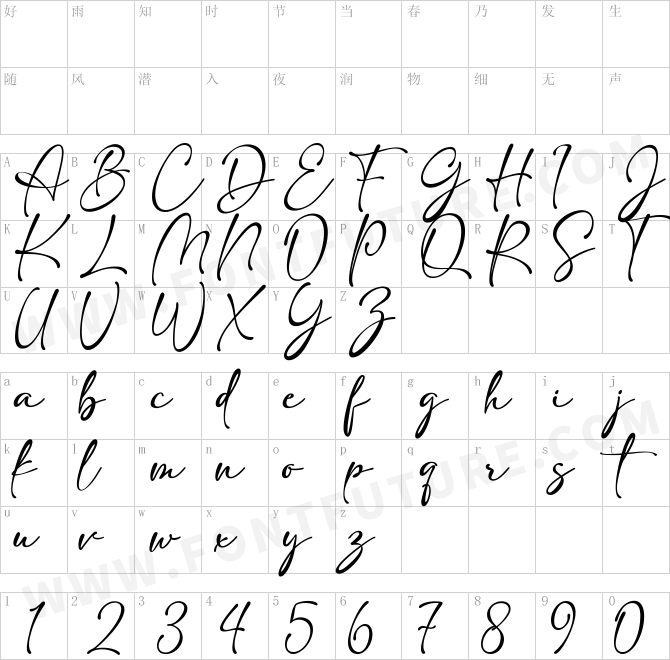 好 雨 知 时 节 当 春 乃 发 生
随 风 潜 入 夜 润 物 细 无 声
A B C D E F G H I J
A B C D E F G H I J
K L M N O P Q R S T
K L M N O P Q R S T
U V W X Y Z
U V W X Y Z
a b c d e f g h i j
a b c d e f g h i j
k l m n o p q r s t
k l m n o p q r s t
u v w x y z
u v w x y z
1 2 3 4 5 6 7 8 9 0
1 2 3 4 5 6 7 8 9 0
WWW.FONTFUTURE.COM
WWW.FONTFUTURE.COM